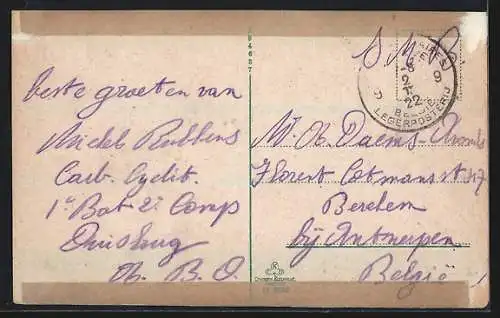 beste groeten van
Michel Rubbens
Carb. Cyclist.
1e Bat 2e Comp
Duisburg
A. B. O.
94687
S. M.
22
BELGIE
LEGERPOSTERIJ
Mr. A. Daems-
Florent Cotmans st
Berchem
bij Antwerpen
België